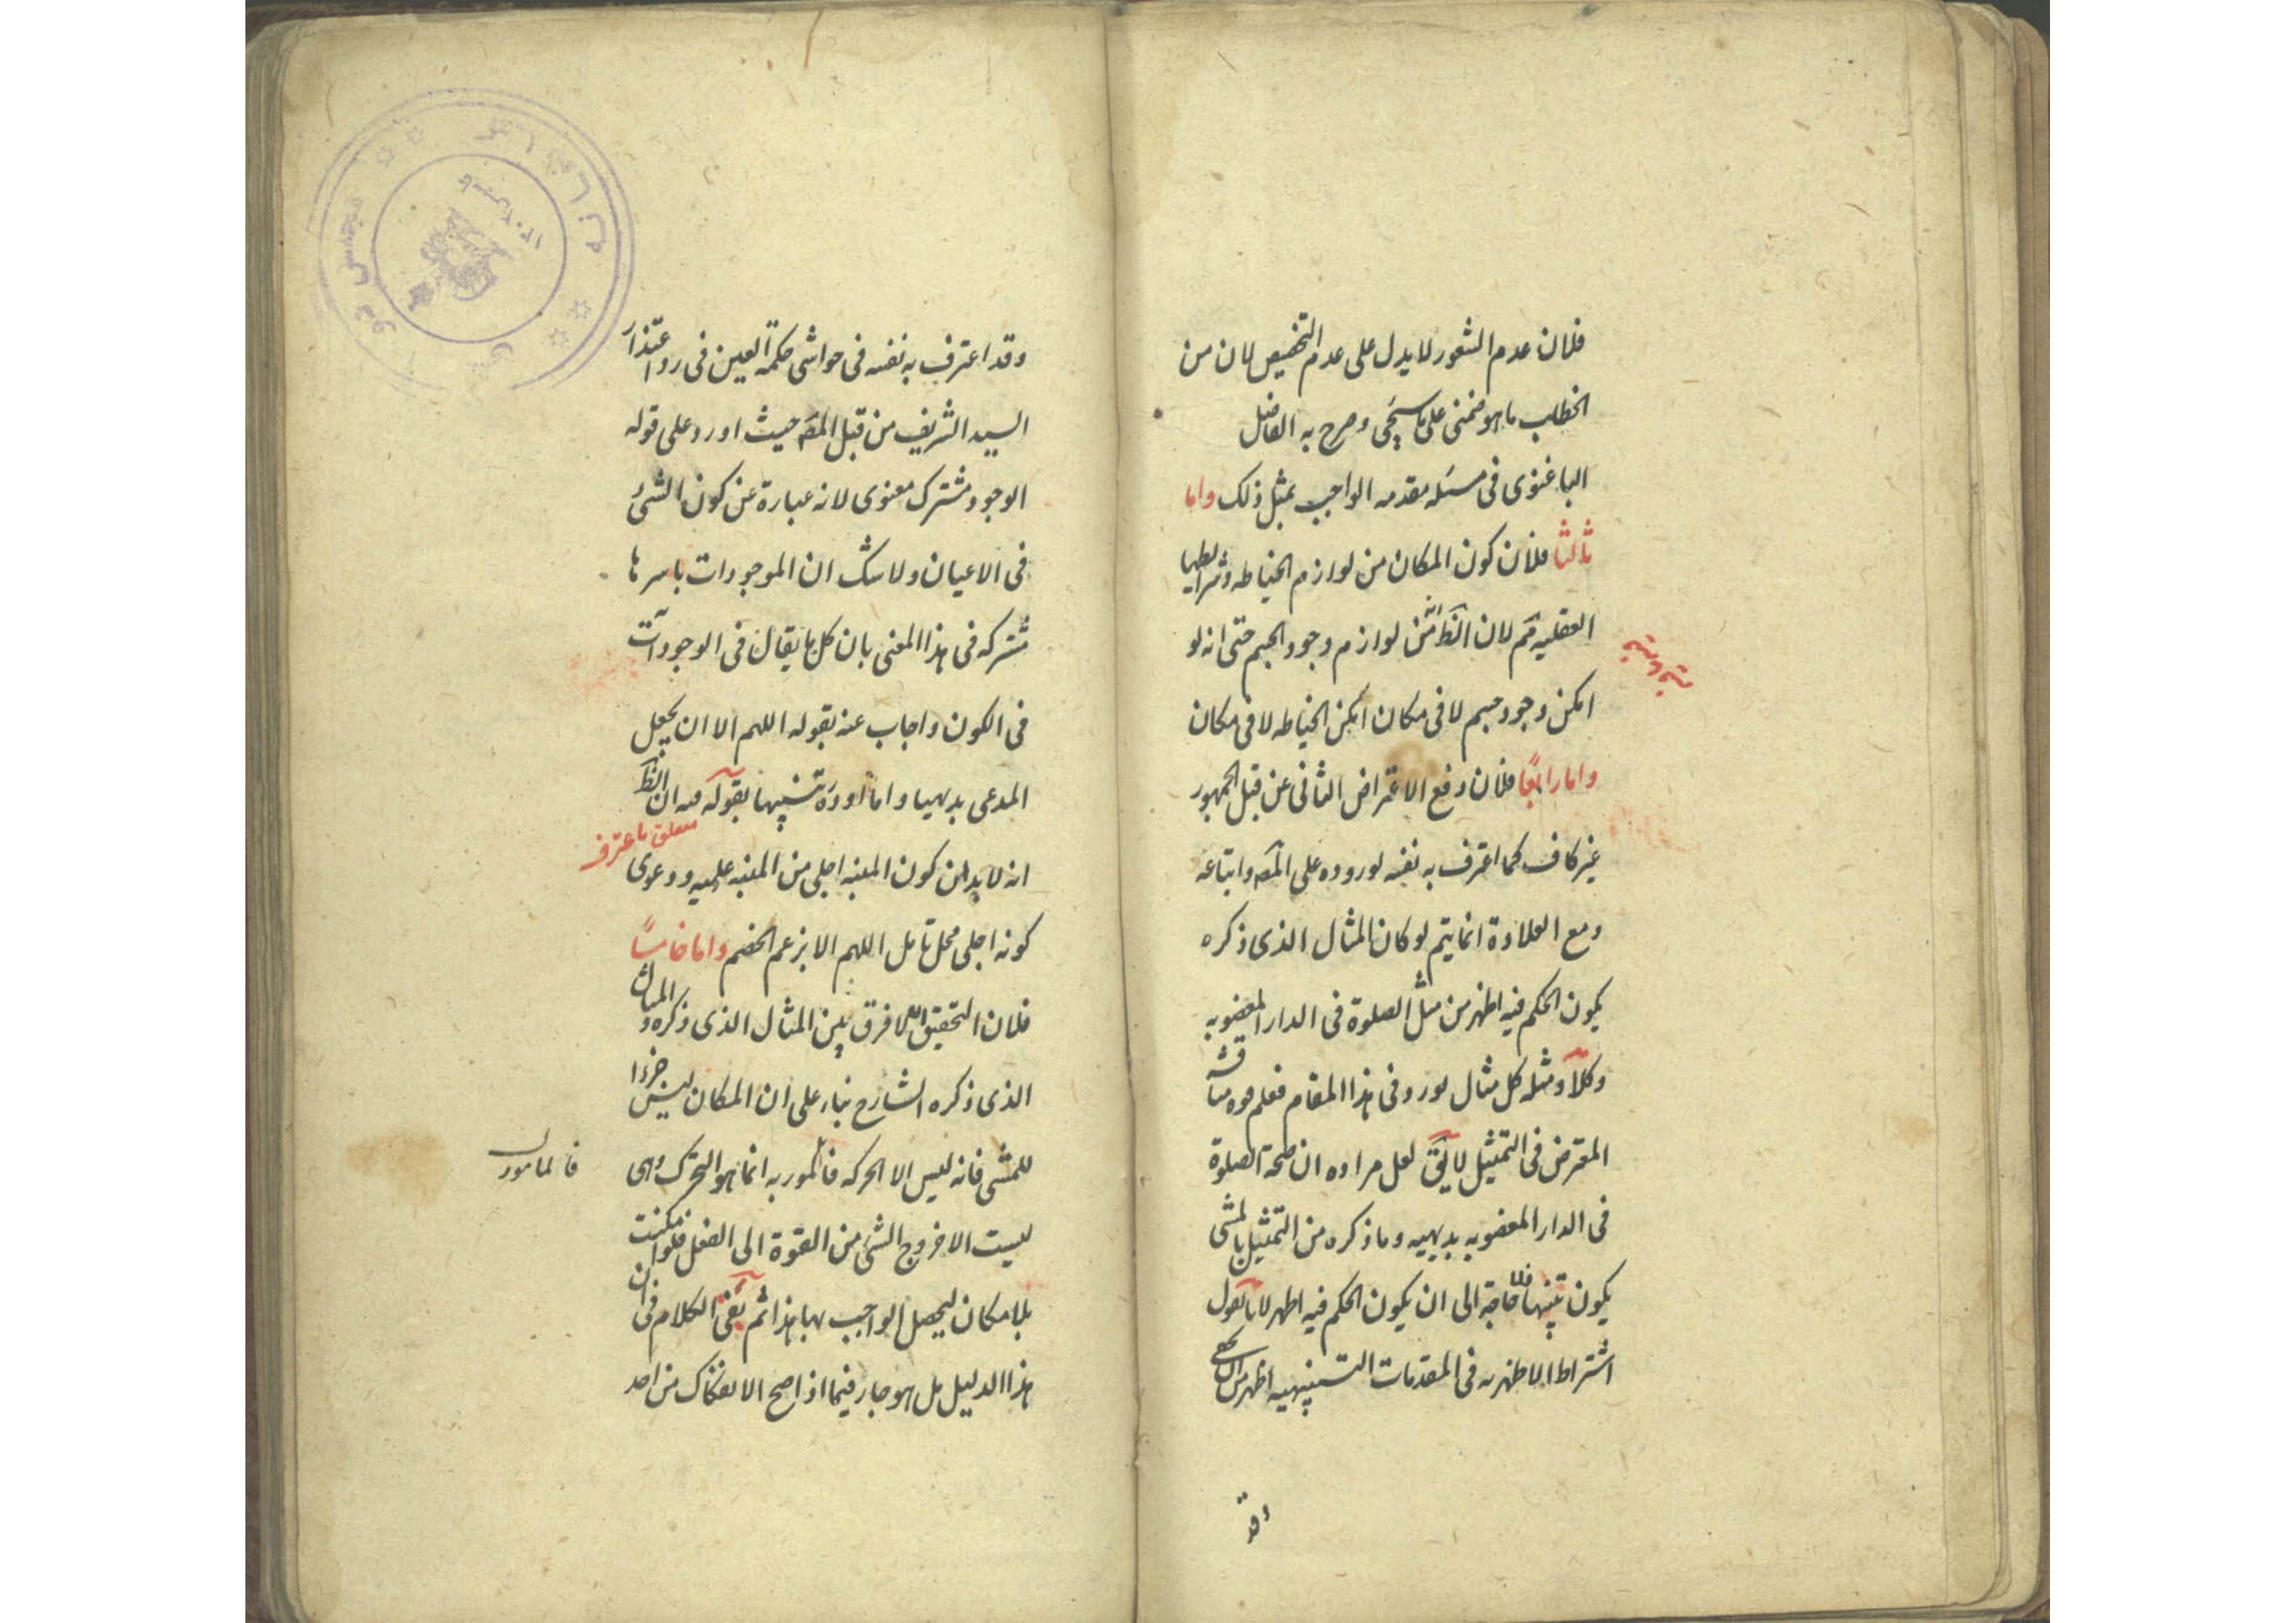 فلان عدم الشعور لا يدل على عدم التخصيص لان من
الخطاب ما هو ضمنى على ما سيجى وصرح به الفاضل
الباغنوى فى مسئله مقدمه الواجب بمثل ذلك واما
ثالثا فلان كون المكان من لوازم الخياطه وشرائطها
العقليه مم لان الظ انه من لوازم وجود الجسم حتى انه لو
امكن وجود جسم لا فى مكان امكن الخياطه لا فى مكان
واما رابعا فلان دفع الاعتراض الثانى عن قبل الجمهور
غير كاف كما اعترف به نفسه لوروده على المص واتباعه
ومع العلاوة انما يتم لو كان المثال الذى ذكره
يكون الحكم فيه اظهر من مثل الصلوة فى الدار المغصوبه
وكلا ومثله كل مثال يورد فى هذا المقام فعلم
المعترض فى التمثيل لا يق لعل مراده ان صحة الصلوة
فى الدار المغصوبه بديهيه وما ذكره من التمثيل بالمشى
يكون تنبيها فلا حاجة الى ان يكون الحكم فيه اظهر لانا نقول
اشتراط الاظهريه فى المقدمات التنبيهيه اظهر من ان يخفى
وقد
وقد اعترف به نفسه فى حواشى حكمة العين فى رد اعتذار
السيد الشريف من قبل المص حيث اورد على قوله
الوجود مشترك معنوى لانه عبارة عن كون الشئ
فى الاعيان ولا شك ان الموجودات باسرها
مشتركه فى هذا المعنى بان كل ما يقال فى الوجود آت
فى الكون واجاب عنه بقوله اللهم الا ان يجعل
المدعى بديهيا واما اورده تنبيها بقوله ان الظ
متعلق باعترف
انه لا بد من كون المنبه اجلى من المنبه عليه ودعوى
كونه اجلى محل تامل اللهم الا بزعم الخصم واما خامسا
فلان التحقيق انه لا فرق بين المثال الذى ذكره والمثال
الذى ذكره الشارح بناء على ان المكان ليس جزءا
للمشى فانه ليس الا الحركه فالمامور به انما هو التحرك وهى
فالمامور
ليست الا خروج الشئ من القوة الى الفعل فلو امكنت
بلا مكان ليحصل الواجب بها هذا ثم بقى الكلام فى ان
هذا الدليل بل هو جار فيما اذا صح الانفكاك من احد